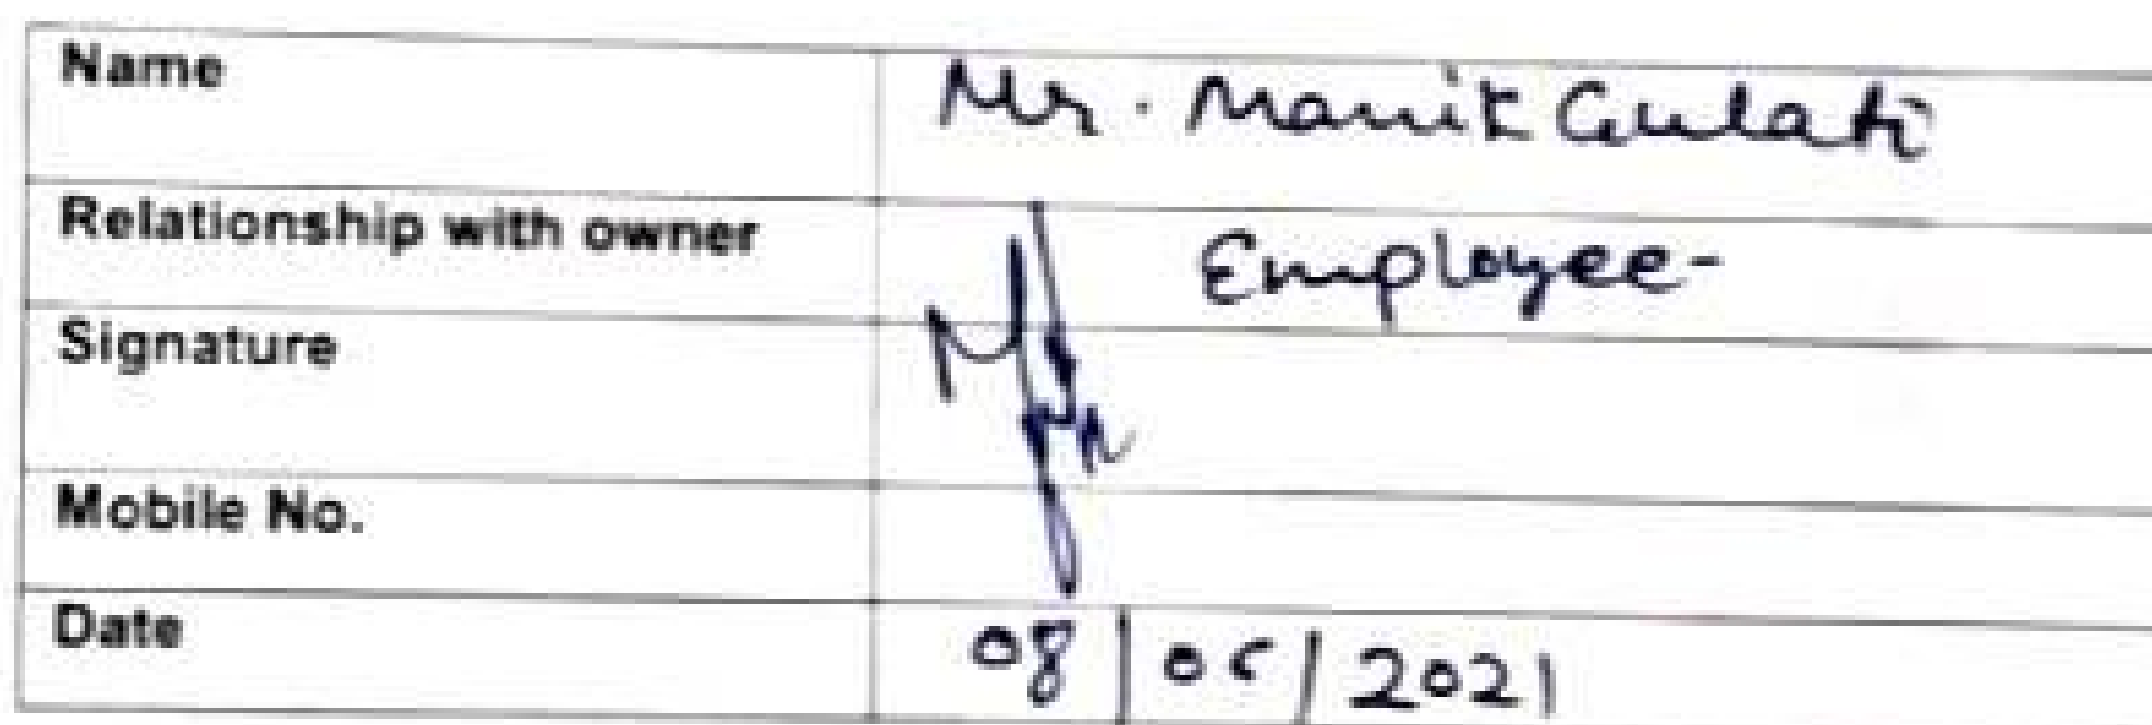 Name Mr. Manik Gulati
Relationship with owner Employee-
Signature
Mobile No.
Date 08/05/2021